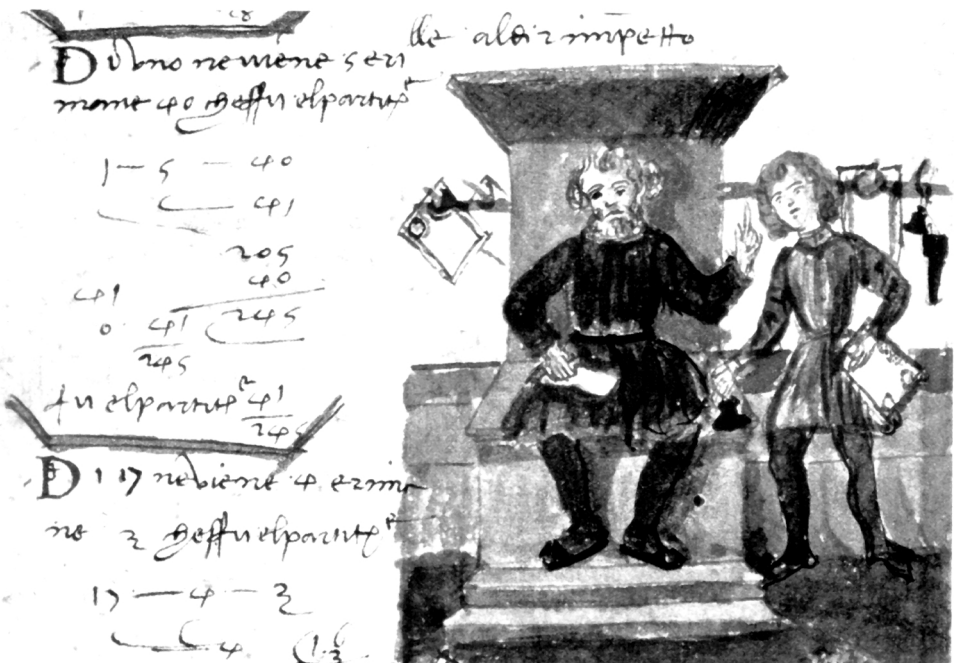 lle al di rimpetto
Di uno ne viene 5 e ri
mane 40 che ffu el partitor
1 — 5 — 40
41
205
40
41 245
0 41
245
fu el partitor 41
245
Di 17 ne viene 4 e rima
ne 3 che ffu el partitor
17 — 4 — 3
4